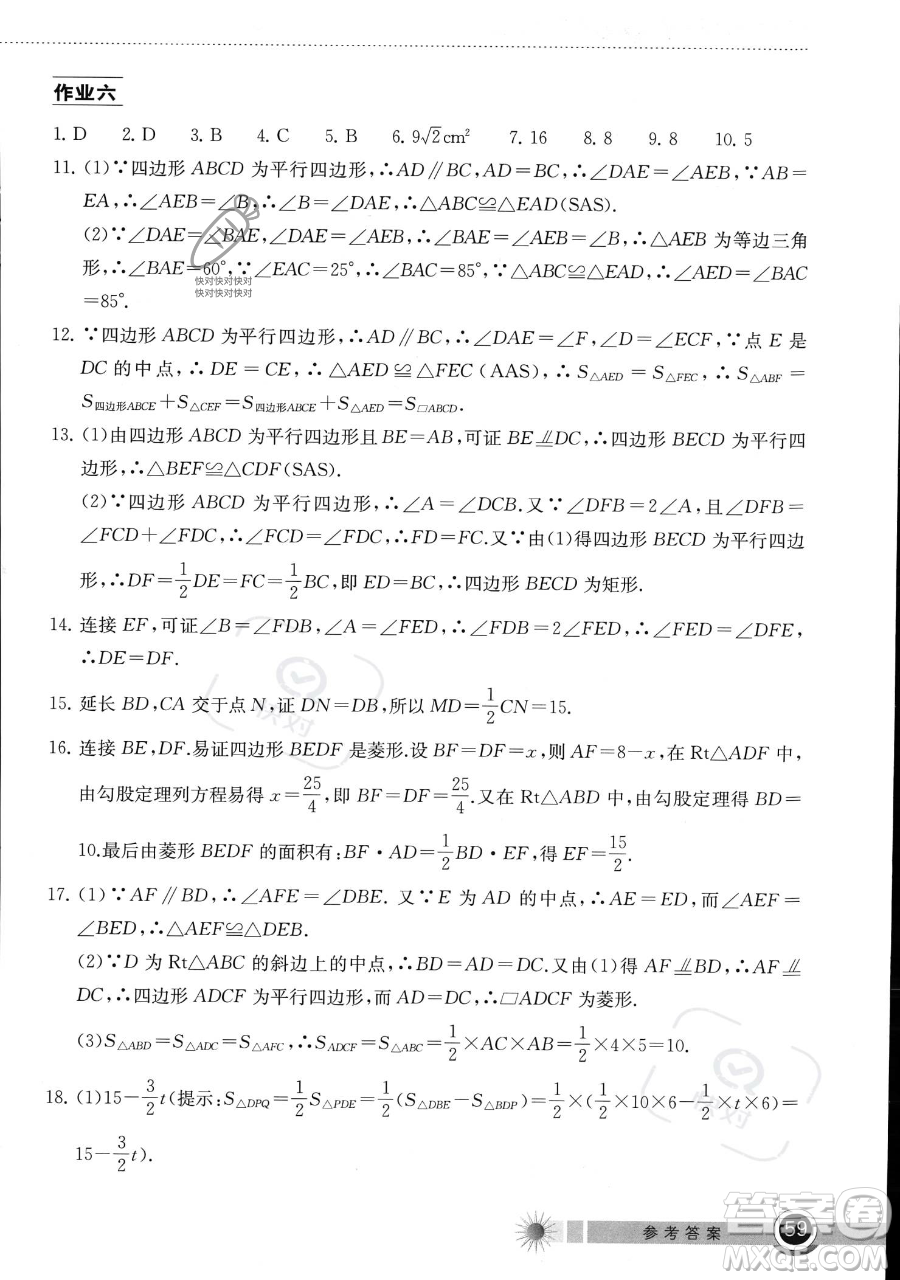 作业六
1. D 2. D 3. B 4. C 5. B 6. 9√2cm² 7. 16 8. 8 9. 8 10. 5
11. (1)∵四边形 ABCD 为平行四边形,∴AD∥BC,AD=BC,∴∠DAE=∠AEB,∵AB=
EA,∴∠AEB=∠B,∴∠B=∠DAE,∴△ABC≌△EAD(SAS).
(2)∵∠DAE=∠BAE,∠DAE=∠AEB,∴∠BAE=∠AEB=∠B,∴△AEB 为等边三角
形,∴∠BAE=60°,∵∠EAC=25°,∴∠BAC=85°,∵△ABC≌△EAD,∴∠AED=∠BAC
=85°.
快对快对快对
快对快对快对
12. ∵四边形 ABCD 为平行四边形,∴AD∥BC,∴∠DAE=∠F,∠D=∠ECF,∵点 E 是
DC 的中点,∴DE=CE,∴△AED≌△FEC(AAS),∴S△AED=S△FEC,∴S△ABF=
S四边形ABCE+S△CEF=S四边形ABCE+S△AED=S▱ABCD.
13. (1)由四边形 ABCD 为平行四边形且 BE=AB,可证 BE⫫DC,∴四边形 BECD 为平行四
边形,∴△BEF≌△CDF(SAS).
(2)∵四边形 ABCD 为平行四边形,∴∠A=∠DCB.又∵∠DFB=2∠A,且∠DFB=
∠FCD+∠FDC,∴∠FCD=∠FDC,∴FD=FC.又∵由(1)得四边形 BECD 为平行四边
形,∴DF=1/2DE=FC=1/2BC,即 ED=BC,∴四边形 BECD 为矩形.
14. 连接 EF,可证∠B=∠FDB,∠A=∠FED,∴∠FDB=2∠FED,∴∠FED=∠DFE,
∴DE=DF.
15. 延长 BD,CA 交于点 N,证 DN=DB,所以 MD=1/2CN=15.
16. 连接 BE,DF.易证四边形 BEDF 是菱形.设 BF=DF=x,则 AF=8-x,在 Rt△ADF 中,
由勾股定理列方程易得 x=25/4,即 BF=DF=25/4.又在 Rt△ABD 中,由勾股定理得 BD=
10.最后由菱形 BEDF 的面积有:BF·AD=1/2BD·EF,得 EF=15/2.
17. (1)∵AF∥BD,∴∠AFE=∠DBE.又∵E 为 AD 的中点,∴AE=ED,而∠AEF=
∠BED,∴△AEF≌△DEB.
(2)∵D 为 Rt△ABC 的斜边上的中点,∴BD=AD=DC.又由(1)得 AF⫫BD,∴AF⫫
DC,∴四边形 ADCF 为平行四边形,而 AD=DC,∴▱ADCF 为菱形.
(3)S△ABD=S△ADC=S△AFC,∴SADCF=1/2×AC×AB=1/2×4×5=10.
18. (1)15-3/2t(提示:S△DPQ=1/2S△PDE=1/2(S△DBE-S△BDP)=1/2×(1/2×10×6-1/2×t×6)=
15-3/2t).
快对
快对
参考答案 59
答案圈
MXQE.COM